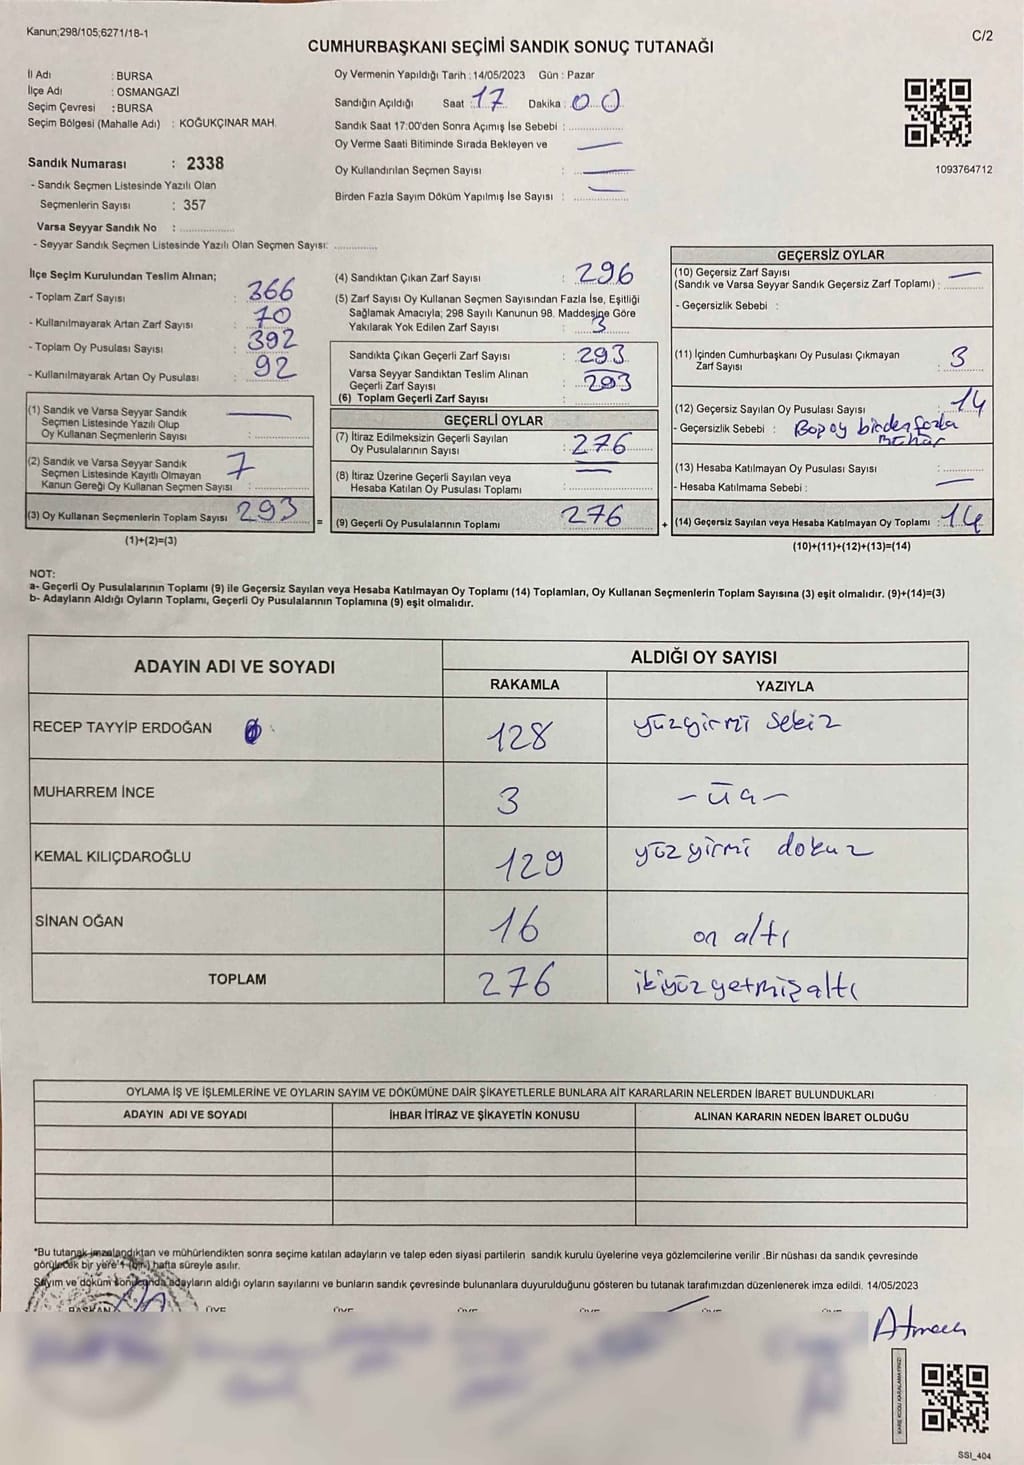 Kanun;298/105;6271/18-1
C/2
CUMHURBAŞKANI SEÇİMİ SANDIK SONUÇ TUTANAĞI
İl Adı : BURSA
İlçe Adı : OSMANGAZİ
Seçim Çevresi : BURSA
Seçim Bölgesi (Mahalle Adı) : KOĞUKÇINAR MAH.
Sandık Numarası : 2338
- Sandık Seçmen Listesinde Yazılı Olan
Seçmenlerin Sayısı : 357
Varsa Seyyar Sandık No :
- Seyyar Sandık Seçmen Listesinde Yazılı Olan Seçmen Sayısı:
Oy Vermenin Yapıldığı Tarih : 14/05/2023 Gün : Pazar
Sandığın Açıldığı Saat : 17 Dakika : 00
Sandık Saat 17:00'den Sonra Açımış İse Sebebi :
Oy Verme Saati Bitiminde Sırada Bekleyen ve
Oy Kullandırılan Seçmen Sayısı : —
Birden Fazla Sayım Döküm Yapılmış İse Sayısı : —
1093764712
İlçe Seçim Kurulundan Teslim Alınan;
- Toplam Zarf Sayısı : 366
- Kullanılmayarak Artan Zarf Sayısı : 70
- Toplam Oy Pusulası Sayısı : 392
- Kullanılmayarak Artan Oy Pusulası : 92
(1) Sandık ve Varsa Seyyar Sandık
Seçmen Listesinde Yazılı Olup
Oy Kullanan Seçmenlerin Sayısı : —
(2) Sandık ve Varsa Seyyar Sandık
Seçmen Listesinde Kayıtlı Olmayan
Kanun Gereği Oy Kullanan Seçmen Sayısı : 7
(3) Oy Kullanan Seçmenlerin Toplam Sayısı 293 =
(1)+(2)=(3)
(4) Sandıktan Çıkan Zarf Sayısı : 296
(5) Zarf Sayısı Oy Kullanan Seçmen Sayısından Fazla İse, Eşitliği
Sağlamak Amacıyla; 298 Sayılı Kanunun 98. Maddesine Göre
Yakılarak Yok Edilen Zarf Sayısı : 3
Sandıkta Çıkan Geçerli Zarf Sayısı : 293
Varsa Seyyar Sandıktan Teslim Alınan
Geçerli Zarf Sayısı : 293
(6) Toplam Geçerli Zarf Sayısı :
GEÇERLİ OYLAR
(7) İtiraz Edilmeksizin Geçerli Sayılan
Oy Pusulalarının Sayısı : 276
(8) İtiraz Üzerine Geçerli Sayılan veya
Hesaba Katılan Oy Pusulası Toplamı : —
(9) Geçerli Oy Pusulalarının Toplamı 276 +
GEÇERSİZ OYLAR
(10) Geçersiz Zarf Sayısı —
(Sandık ve Varsa Seyyar Sandık Geçersiz Zarf Toplamı) :
- Geçersizlik Sebebi :
(11) İçinden Cumhurbaşkanı Oy Pusulası Çıkmayan
Zarf Sayısı : 3
(12) Geçersiz Sayılan Oy Pusulası Sayısı : 14
- Geçersizlik Sebebi : birden fazla
(13) Hesaba Katılmayan Oy Pusulası Sayısı :
- Hesaba Katılmama Sebebi : —
(14) Geçersiz Sayılan veya Hesaba Katılmayan Oy Toplamı : 14
(10)+(11)+(12)+(13)=(14)
NOT:
a- Geçerli Oy Pusulalarının Toplamı (9) ile Geçersiz Sayılan veya Hesaba Katılmayan Oy Toplamı (14) Toplamları, Oy Kullanan Seçmenlerin Toplam Sayısına (3) eşit olmalıdır. (9)+(14)=(3)
b- Adayların Aldığı Oyların Toplamı, Geçerli Oy Pusulalarının Toplamına (9) eşit olmalıdır.
ADAYIN ADI VE SOYADI
ALDIĞI OY SAYISI
RAKAMLA YAZIYLA
RECEP TAYYİP ERDOĞAN 128 yüzyirmi sekiz
MUHARREM İNCE 3 -üç-
KEMAL KILIÇDAROĞLU 129 yüzyirmi dokuz
SİNAN OĞAN 16 on altı
TOPLAM 276 ikiyüzyetmişaltı
OYLAMA İŞ VE İŞLEMLERİNE VE OYLARIN SAYIM VE DÖKÜMÜNE DAİR ŞİKAYETLERLE BUNLARA AİT KARARLARIN NELERDEN İBARET BULUNDUKLARI
ADAYIN ADI VE SOYADI İHBAR İTİRAZ VE ŞİKAYETİN KONUSU ALINAN KARARIN NEDEN İBARET OLDUĞU
*Bu tutanak imzalandıktan ve mühürlendikten sonra seçime katılan adayların ve talep eden siyasi partilerin sandık kurulu üyelerine veya gözlemcilerine verilir .Bir nüshası da sandık çevresinde
görülecek bir yere 1 (bir) hafta süreyle asılır.
Sayım ve döküm sonucunda adayların aldığı oyların sayılarını ve bunların sandık çevresinde bulunanlara duyurulduğunu gösteren bu tutanak tarafımızdan düzenlenerek imza edildi. 14/05/2023
BAŞKAN ÜYE ÜYE ÜYE ÜYE ÜYE ÜYE
KARE KODU KARALAMAYINIZ!
SSI_404